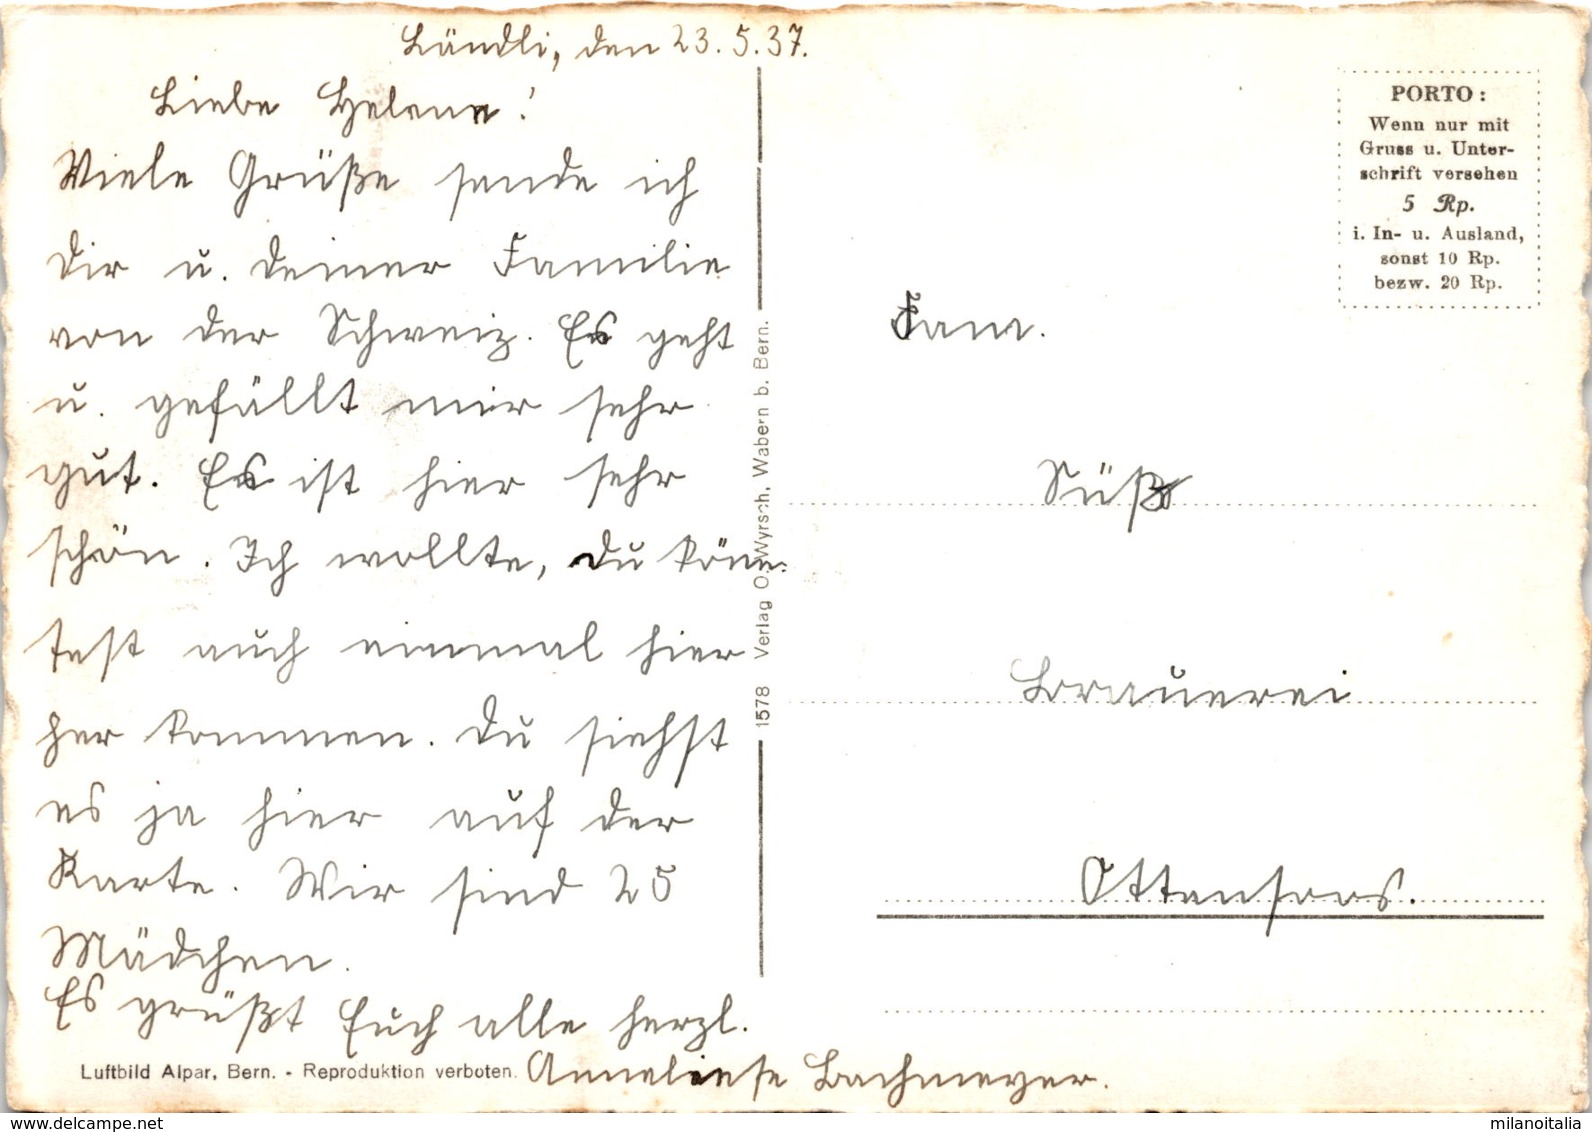 Ländli, den 23.5.37.
Liebe Helene!
Viele Grüße sende ich
Dir u. Deiner Familie
von der Schweiz. Es geht
u. gefällt mir sehr
gut. Es ist hier sehr
schön. Ich wollte, Du könn-
test auch einmal hier
her kommen. Du siehst
es ja hier auf der
Karte. Wir sind 25
Mädchen.
Es grüßt Euch alle herzl.
Anneliese Bachmeyer.
Luftbild Alpar, Bern. - Reproduktion verboten.
1578 Verlag O. Wyrsch, Wabern b. Bern.
PORTO:
Wenn nur mit
Gruss u. Unter-
schrift versehen
5 Rp.
i. In- u. Ausland,
sonst 10 Rp.
bezw. 20 Rp.
Fam.
Süß
Brauerei
Ottensoos.
www.delcampe.net
milanoitalia